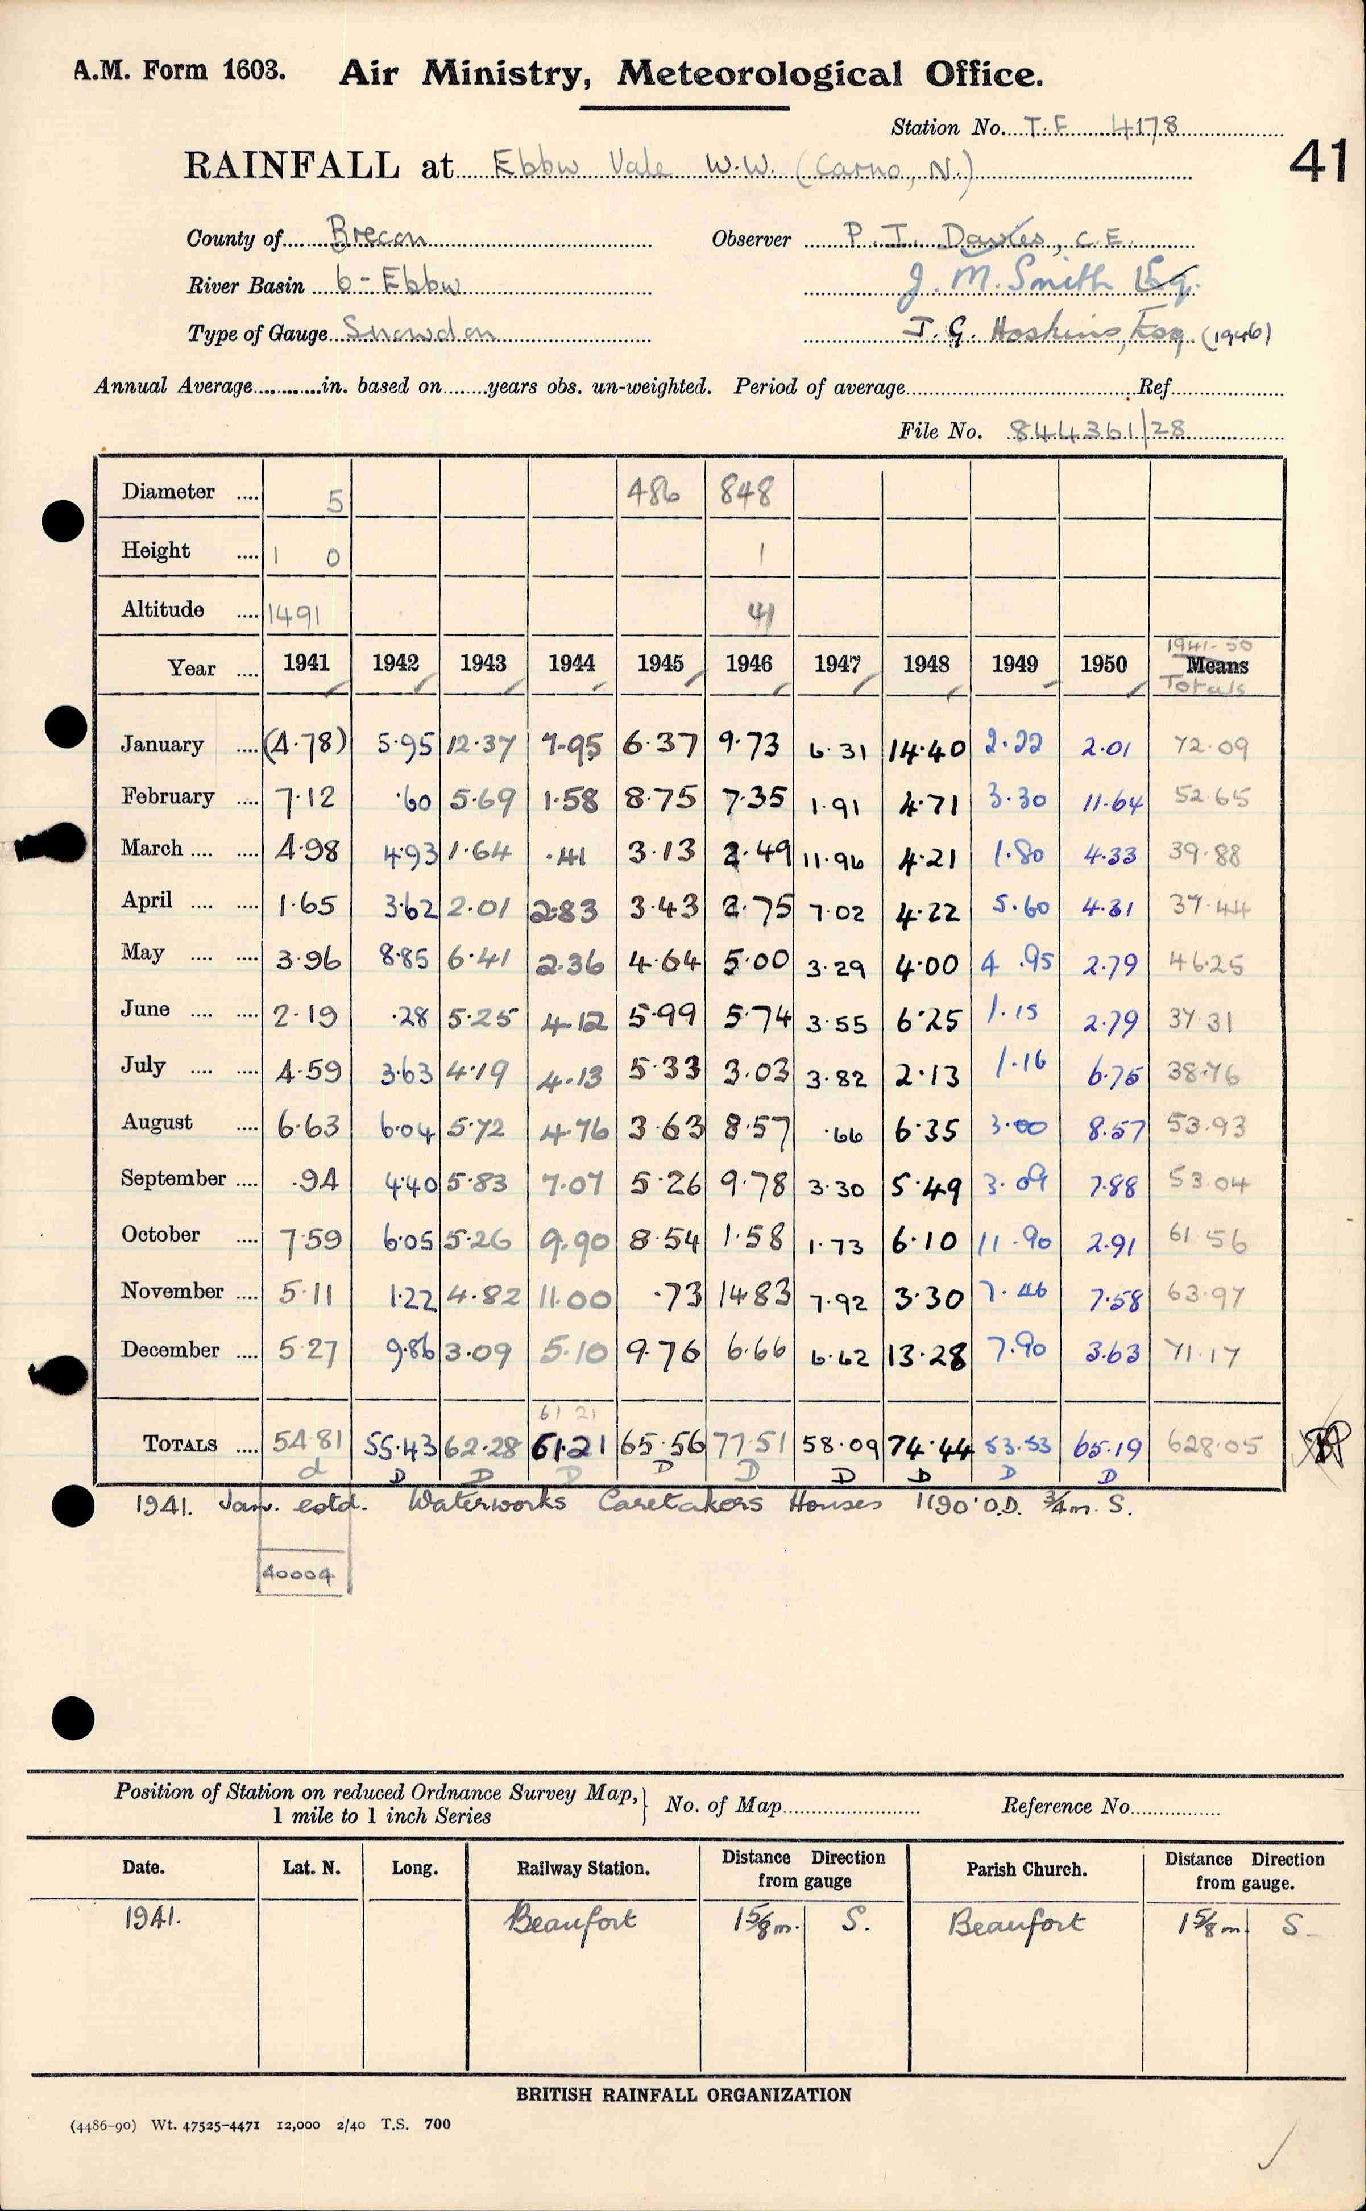 A.M. Form 1603. Air Ministry, Meteorological Office.
Station No. T.F. 4178
41
RAINFALL at Ebbw Vale W.W. (Carno, N.)
County of Brecon Observer P. I. Davies, C.E.
River Basin 6 - Ebbw J. M. Smith Esq.
Type of Gauge Snowdon J. G. Hoskins, Esq (1946)
Annual Average in. based on years obs. un-weighted. Period of average Ref
File No. 844361/28
Diameter .... 5 486 848
Height .... 1 0 1
Altitude .... 1491 41
1941-50
Year .... 1941 1942 1943 1944 1945 1946 1947 1948 1949 1950 Means
Totals
January .... (4.78) 5.95 12.37 7.95 6.37 9.73 6.31 14.40 2.22 2.01 72.09
February .... 7.12 .60 5.69 1.58 8.75 7.35 1.91 4.71 3.30 11.64 52.65
March .... .... 4.98 4.93 1.64 .41 3.13 2.49 11.96 4.21 1.80 4.33 39.88
April .... .... 1.65 3.62 2.01 2.83 3.43 2.75 7.02 4.22 5.60 4.31 37.44
May .... .... 3.96 8.85 6.41 2.36 4.64 5.00 3.29 4.00 4.95 2.79 46.25
June .... .... 2.19 .28 5.25 4.12 5.99 5.74 3.55 6.25 1.15 2.79 37.31
July .... .... 4.59 3.63 4.19 4.13 5.33 3.03 3.82 2.13 1.16 6.75 38.76
August .... 6.63 6.04 5.72 4.76 3.63 8.57 .66 6.35 3.00 8.57 53.93
September .... .94 4.40 5.83 7.07 5.26 9.78 3.30 5.49 3.09 7.88 53.04
October .... 7.59 6.05 5.26 9.90 8.54 1.58 1.73 6.10 11.90 2.91 61.56
November .... 5.11 1.22 4.82 11.00 .73 14.83 7.92 3.30 7.46 7.58 63.97
December .... 5.27 9.86 3.09 5.10 9.76 6.66 6.62 13.28 7.90 3.63 71.17
61 21
TOTALS .... 54.81 55.43 62.28 61.21 65.56 77.51 58.09 74.44 53.53 65.19 628.05
d D D D D D D D D D
1941. Jan. estd. Waterworks Caretakers Houses 1190' O.D. 3/4 m. S.
40004
Position of Station on reduced Ordnance Survey Map, } No. of Map Reference No.
1 mile to 1 inch Series
Date. Lat. N. Long. Railway Station. Distance Direction from gauge Parish Church. Distance Direction from gauge.
1941. Beaufort 1 5/8 m. S. Beaufort 1 5/8 m. S.
BRITISH RAINFALL ORGANIZATION
(4486-90) Wt. 47525-4471 12,000 2/40 T.S. 700